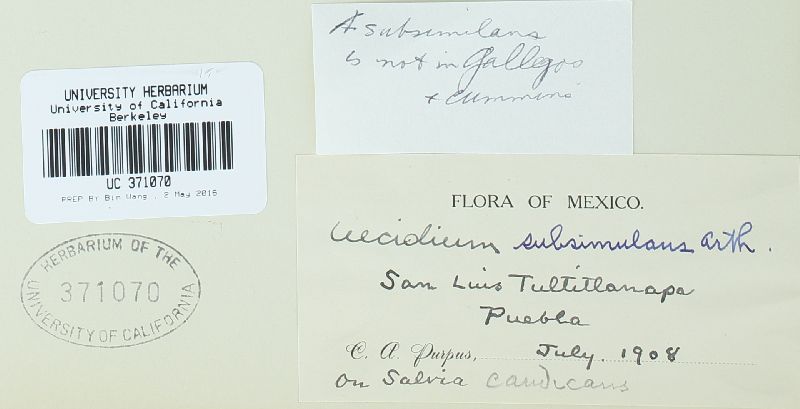 A subsimilans
is not in Gallegos
+ Cummins
UNIVERSITY HERBARIUM
University of California
Berkeley
UC 371070
PREP BY Bin Wang , 2 May 2016
HERBARIUM OF THE
371070
UNIVERSITY OF CALIFORNIA
FLORA OF MEXICO.
Aecidium subsimulans Arth.
San Luis Tultitlanapa
Puebla
C. A. Purpus, July. 1908
on Salvia candicans